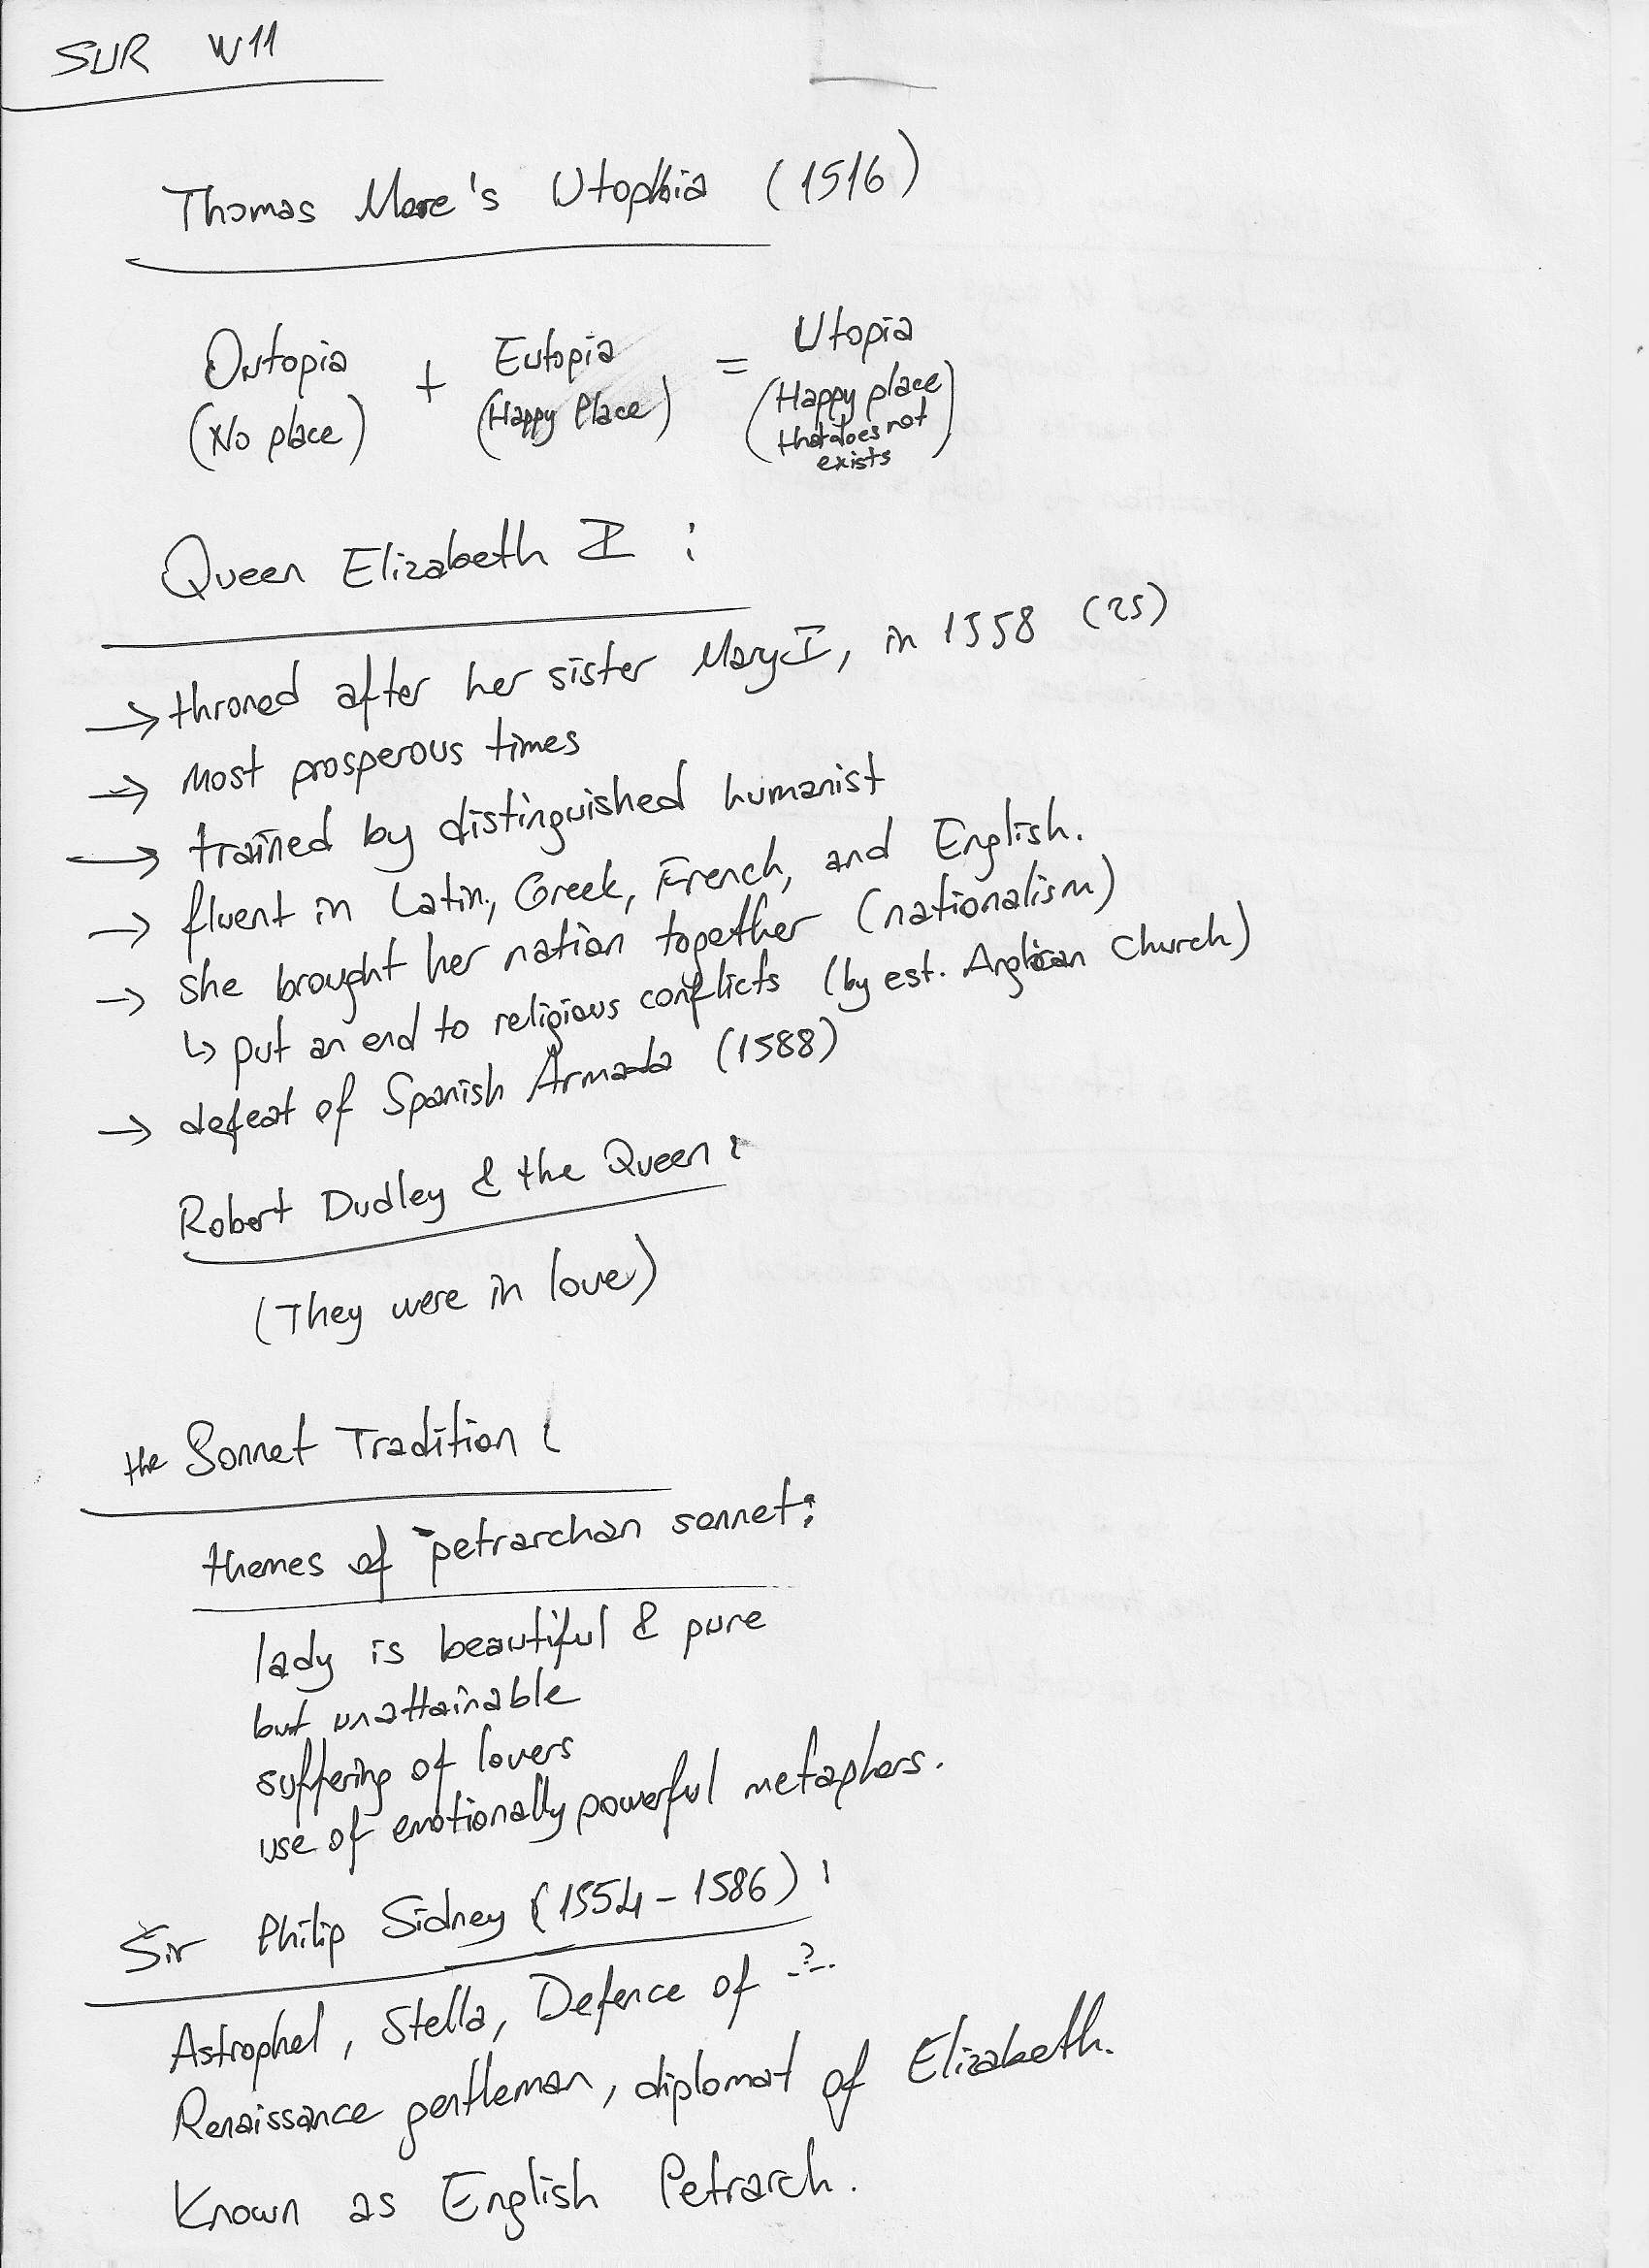 SUR W11
Thomas More's Utophia (1516)
Outopia + Eutopia = Utopia
(No place) (Happy Place) (Happy place
that does not
exists)
Queen Elizabeth I :
→ throned after her sister Mary I, in 1558 (25)
→ Most prosperous times
→ trained by distinguished humanist
→ fluent in Latin, Greek, French, and English.
→ she brought her nation together (nationalism)
↳ put an end to religious conflicts (by est. Anglican Church)
→ defeat of Spanish Armada (1588)
Robert Dudley & the Queen :
(They were in love)
the Sonnet Tradition :
themes of petrarchan sonnet :
lady is beautiful & pure
but unattainable
suffering of lovers
use of emotionally powerful metaphors.
Sir Philip Sidney (1554 - 1586) :
Astrophel, Stella, Defence of -?-.
Renaissance gentleman, diplomat of Elizabeth.
Known as English Petrarch.